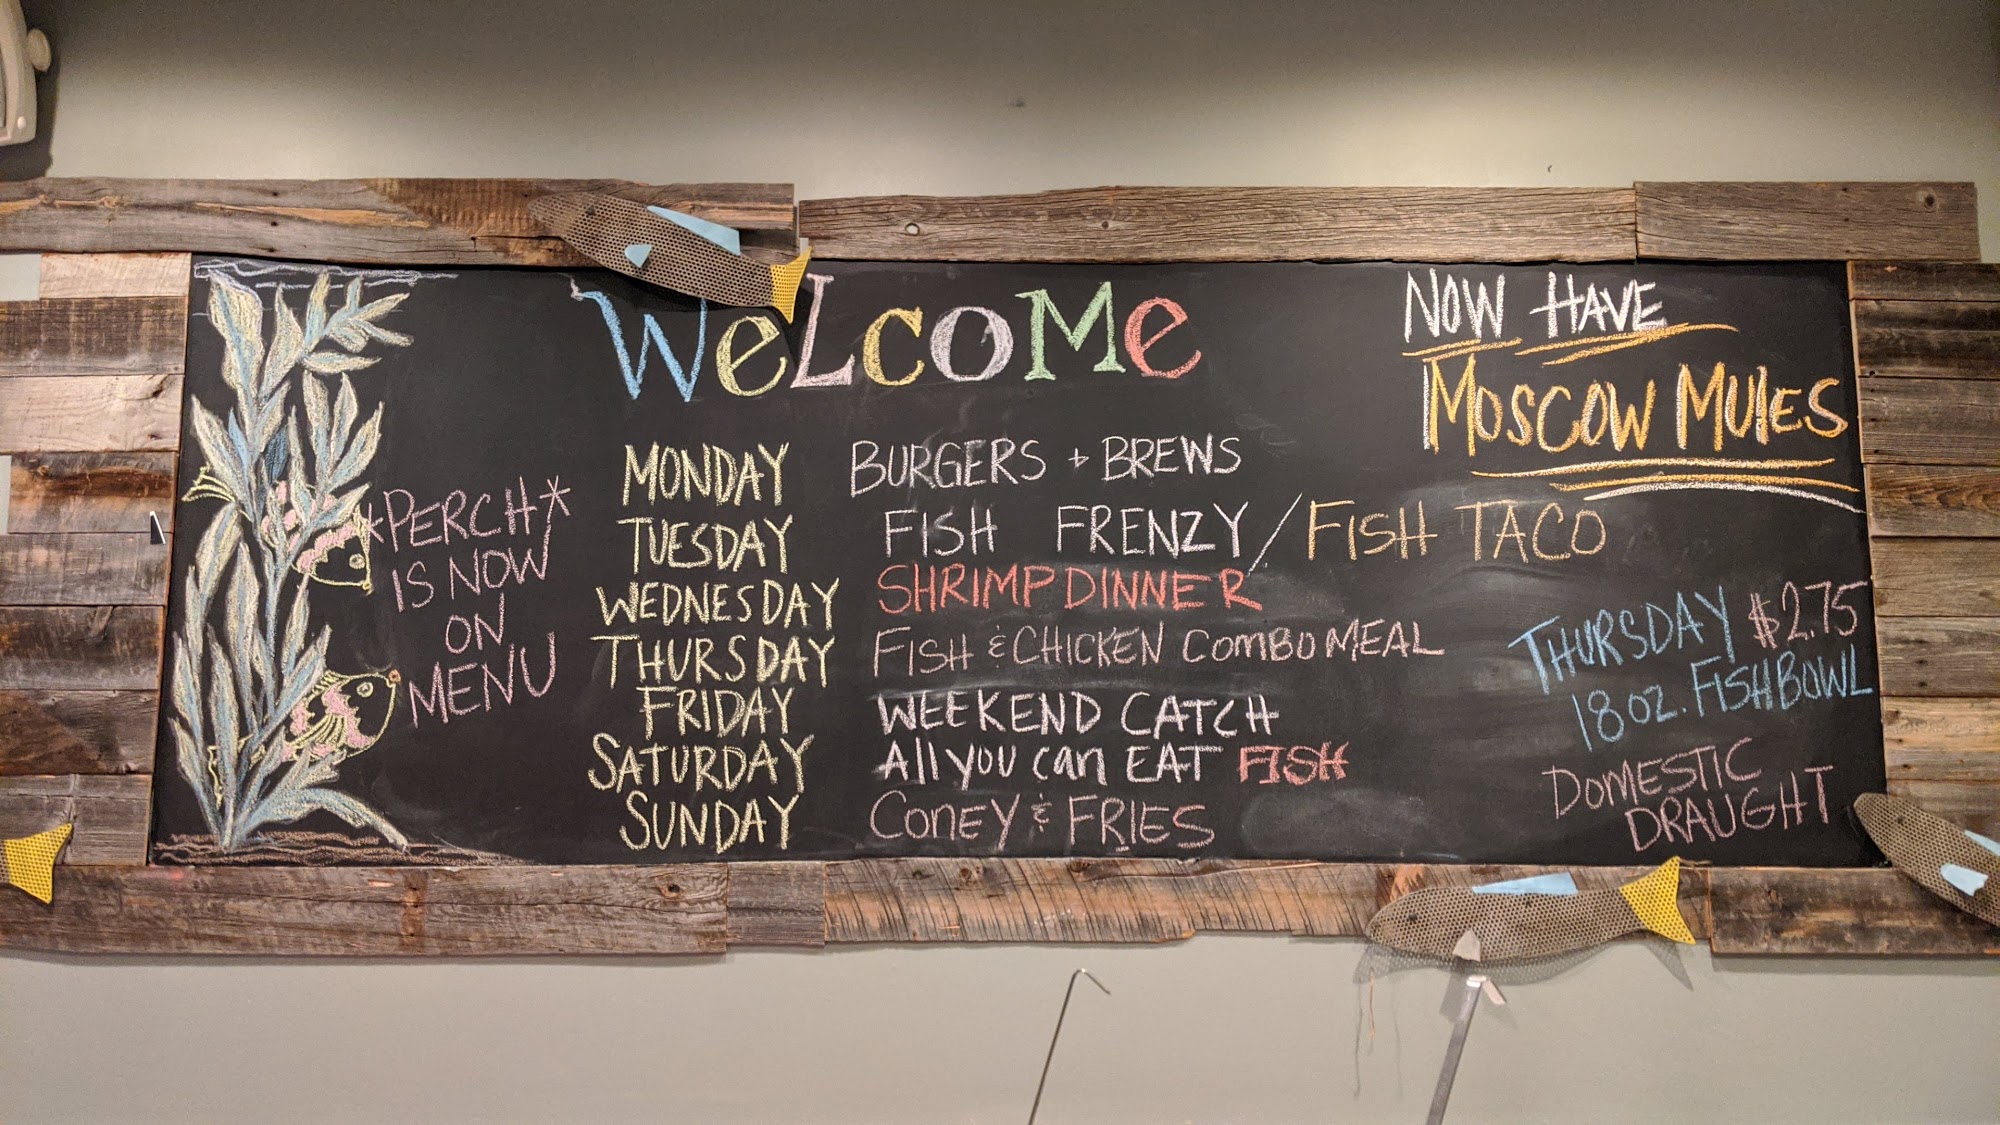 WeLcoMe
*PERCH*
IS NOW
ON
MENU
MONDAY BURGERS + BREWS
TUESDAY FISH FRENZY / FISH TACO
WEDNESDAY SHRIMP DINNER
THURSDAY FISH & CHICKEN COMBO MEAL
FRIDAY WEEKEND CATCH
SATURDAY All you can EAT FISH
SUNDAY CONEY & FRIES
NOW HAVE
MOSCOW MULES
THURSDAY $2.75
18 oz. FISHBOWL
DOMESTIC
DRAUGHT